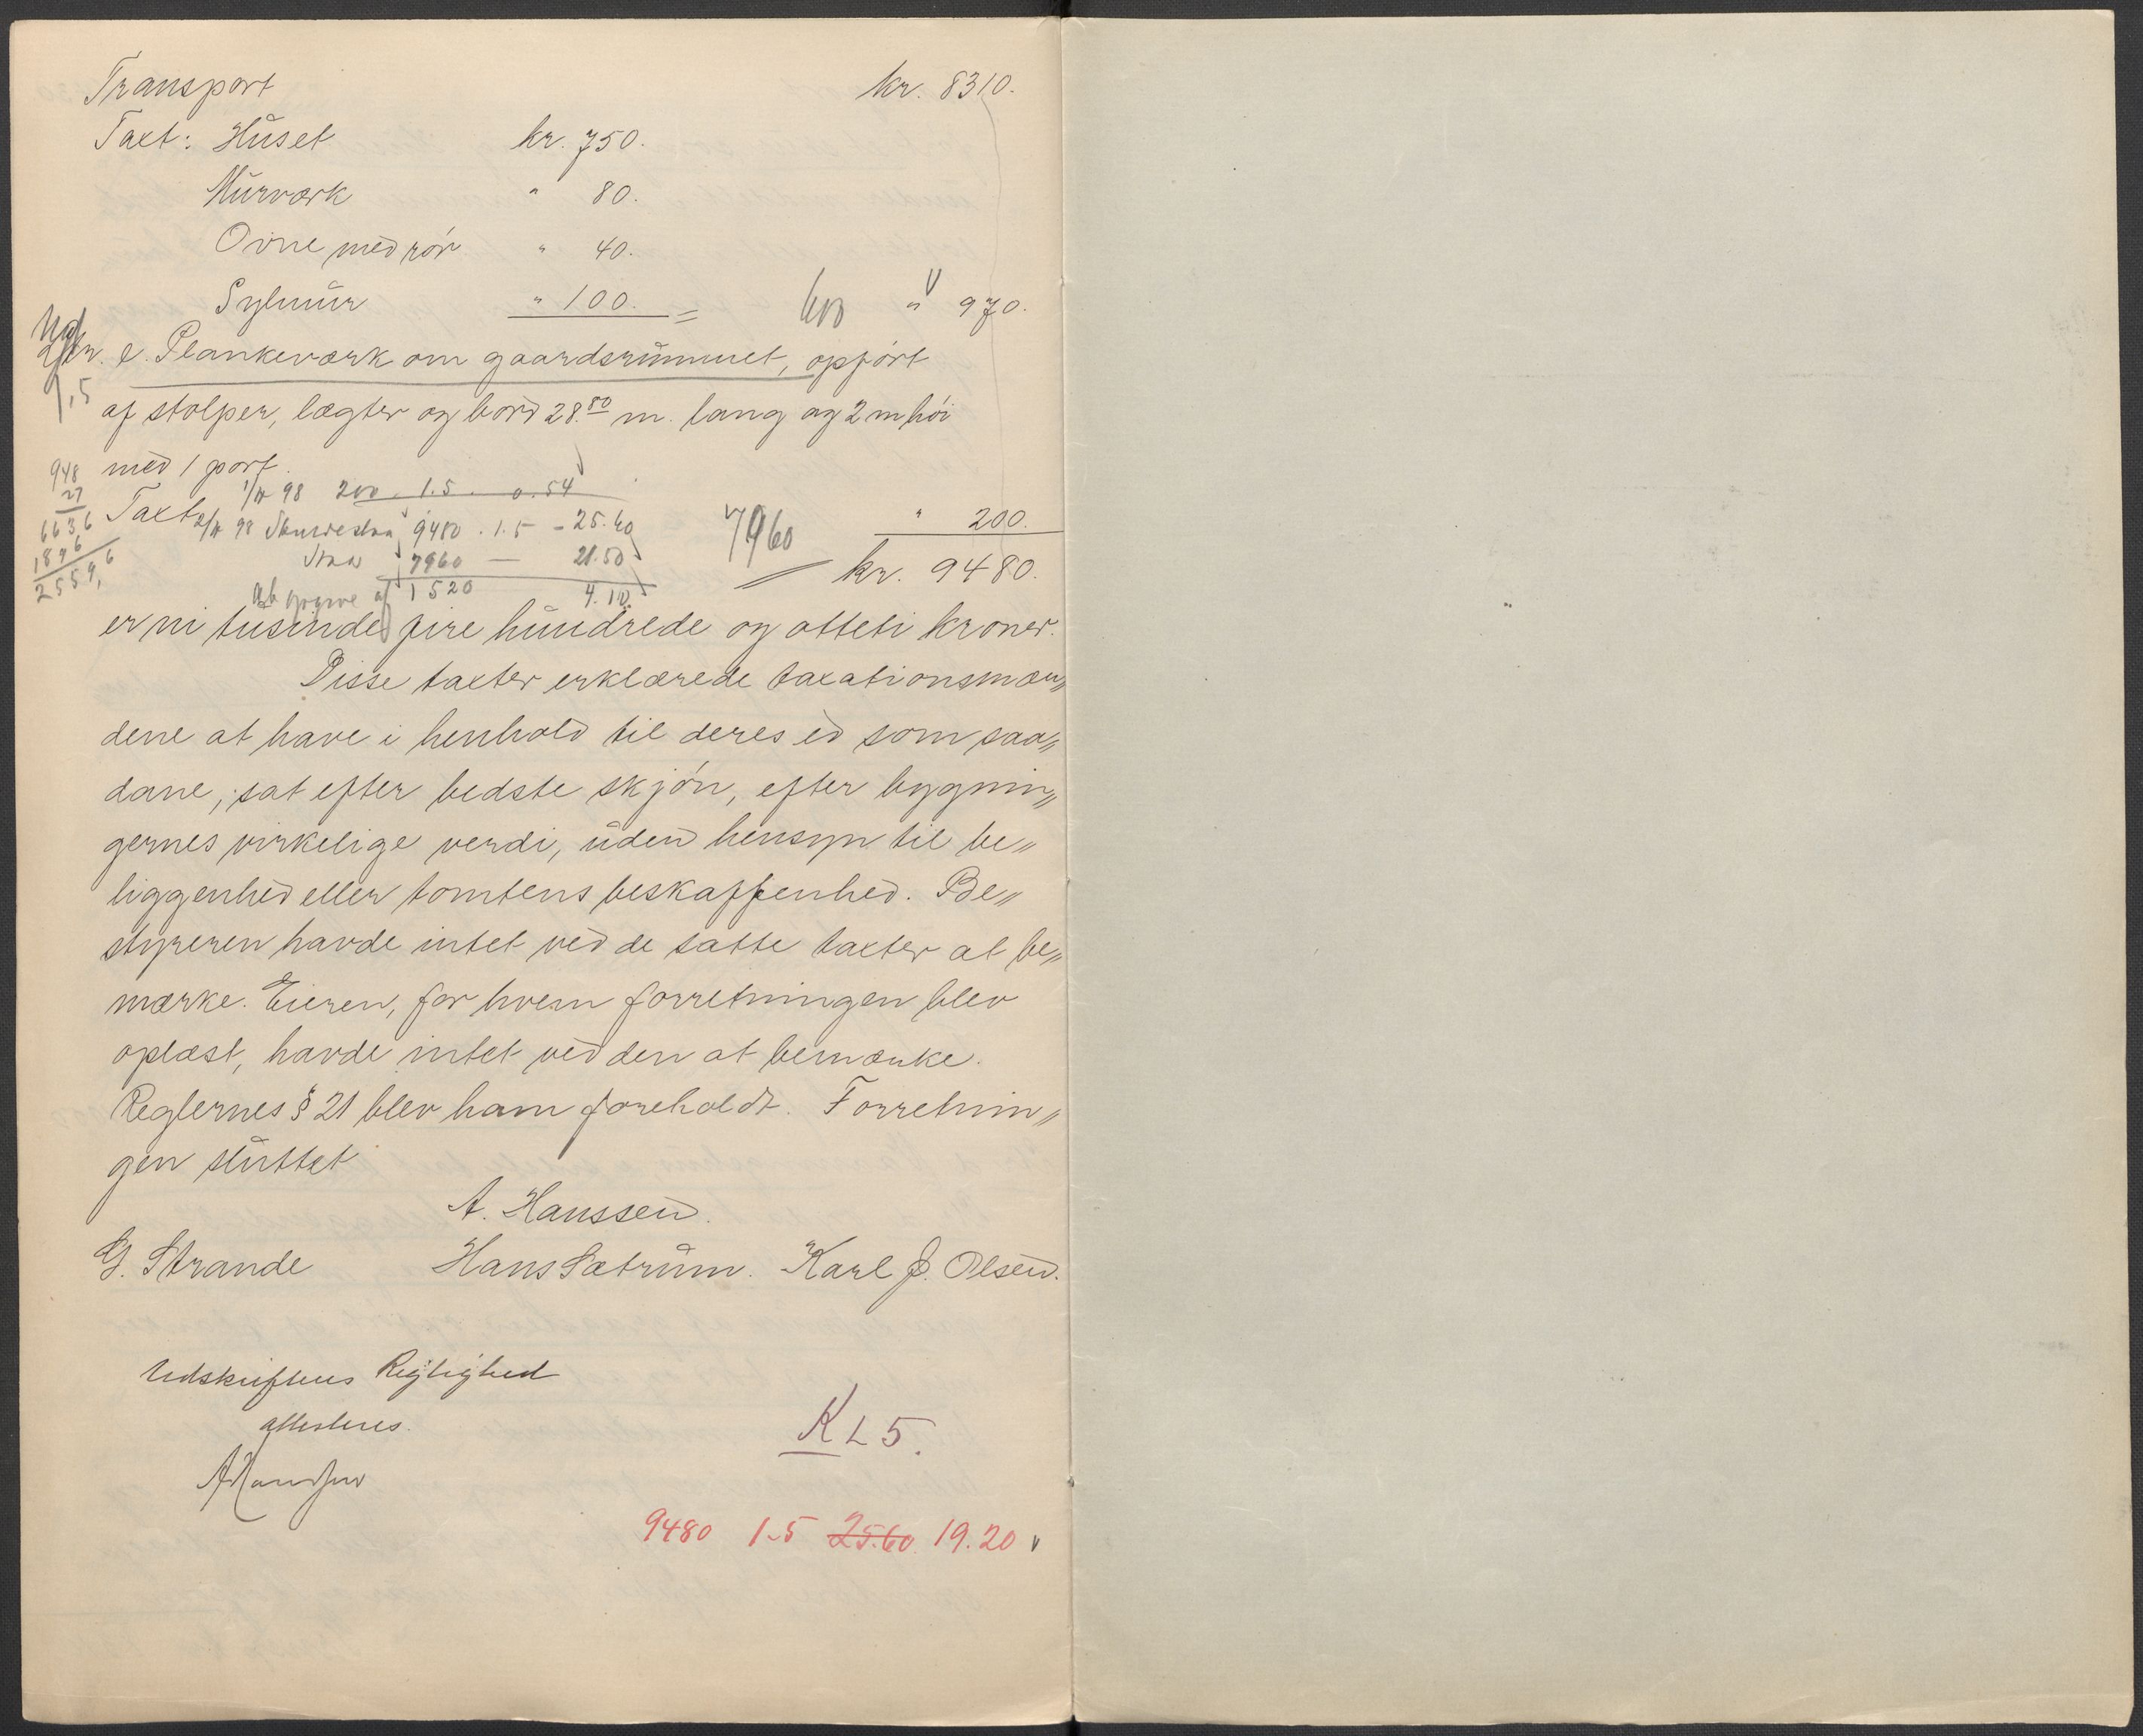 Transport kr. 8310.
Taxt: Huset kr. 750.
Murværk " 80.
Ovne med rör " 40.
Sylmur " 100. = 600 " 970.
e. Plankeværk om gaardsrummet, opfört
1,5
af stolper, lægter og bord 28.80 m. lang og 2 m höi
948 med 1 port.
27 1/4 98 200 . 1.5 . 0.54
6636 Taxt 2/4 98 9480 . 1.5 - 25.60 7960 " 200.
1896 7960 — 21.50 kr. 9480.
2559,6 1520 4.10
er ni tusinde fire hundrede og otteti kroner.
Disse taxter erklærede taxationsmæn„
dene at have i henhold til deres ed som saa„
dane, sat efter bedste skjön, efter bygnin„
gernes virkelige verdi, uden hensyn til be„
liggenhed eller tomtens beskaffenhed. Be„
styreren havde intet ved de satte taxter at be„
mærke. Eieren, for hvem forretningen blev
oplæst, havde intet ved den at bemærke.
Reglernes § 21 blev ham foreholdt. Forretnin„
gen sluttet
A. Hanssen.
G. Strande Hans Sætrum. Karl J. Olsen.
Udskriftens Rigtighed
attesteres.
K L 5.
AHanssen
9480 1-5 25.60 19.20 v